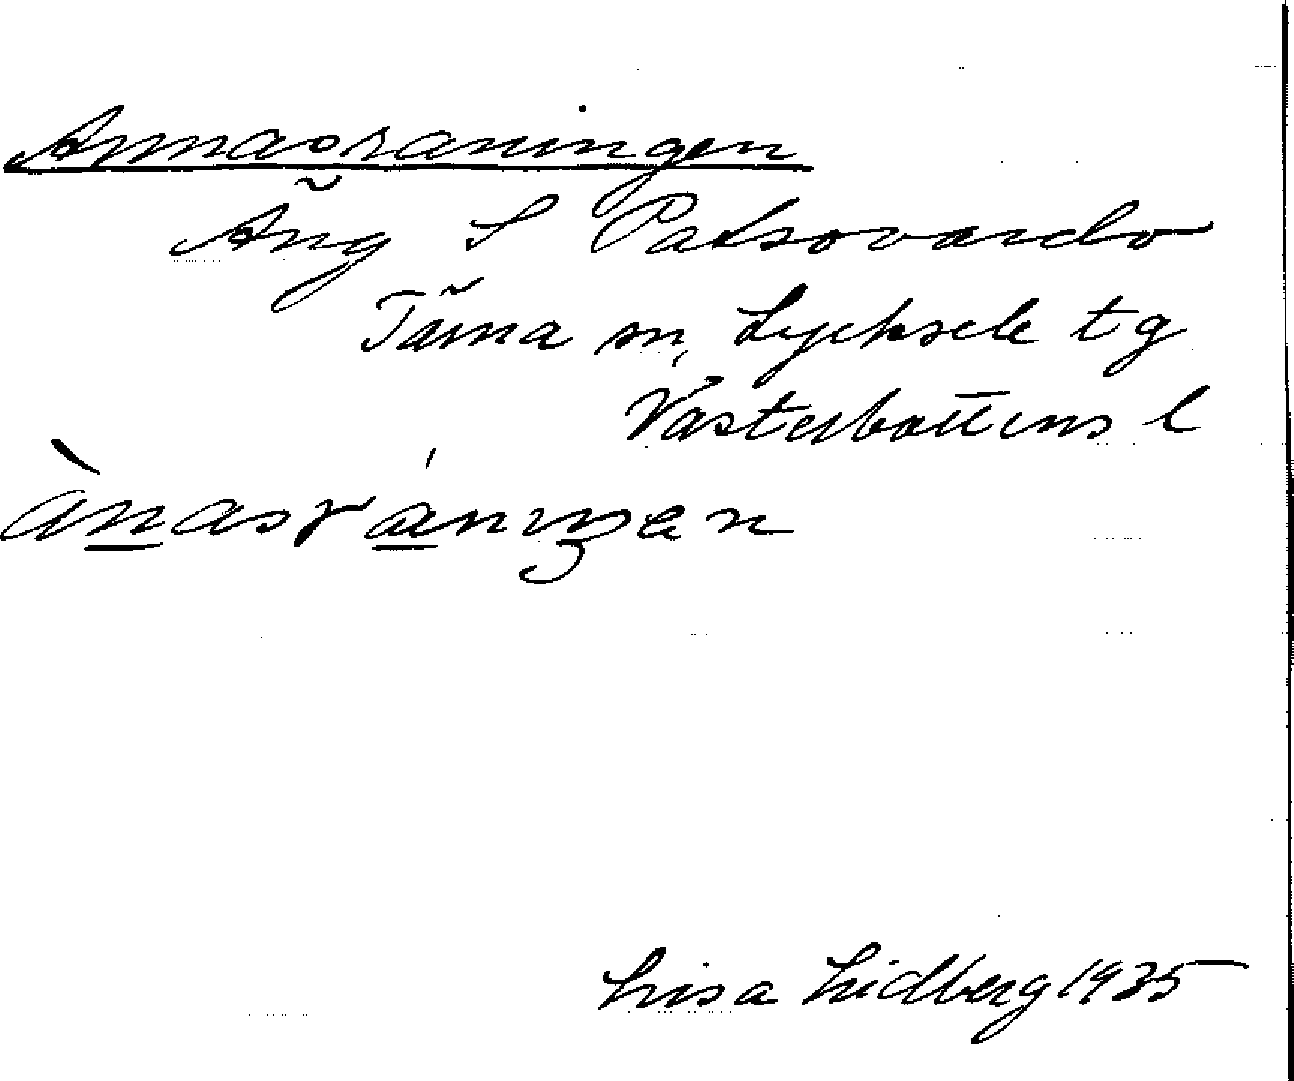 Annasraningen
Äng S Patsovardo
Tärna sn, Lycksele tg
Västerbottens l
ànasráningen
Lisa Lidberg 1935